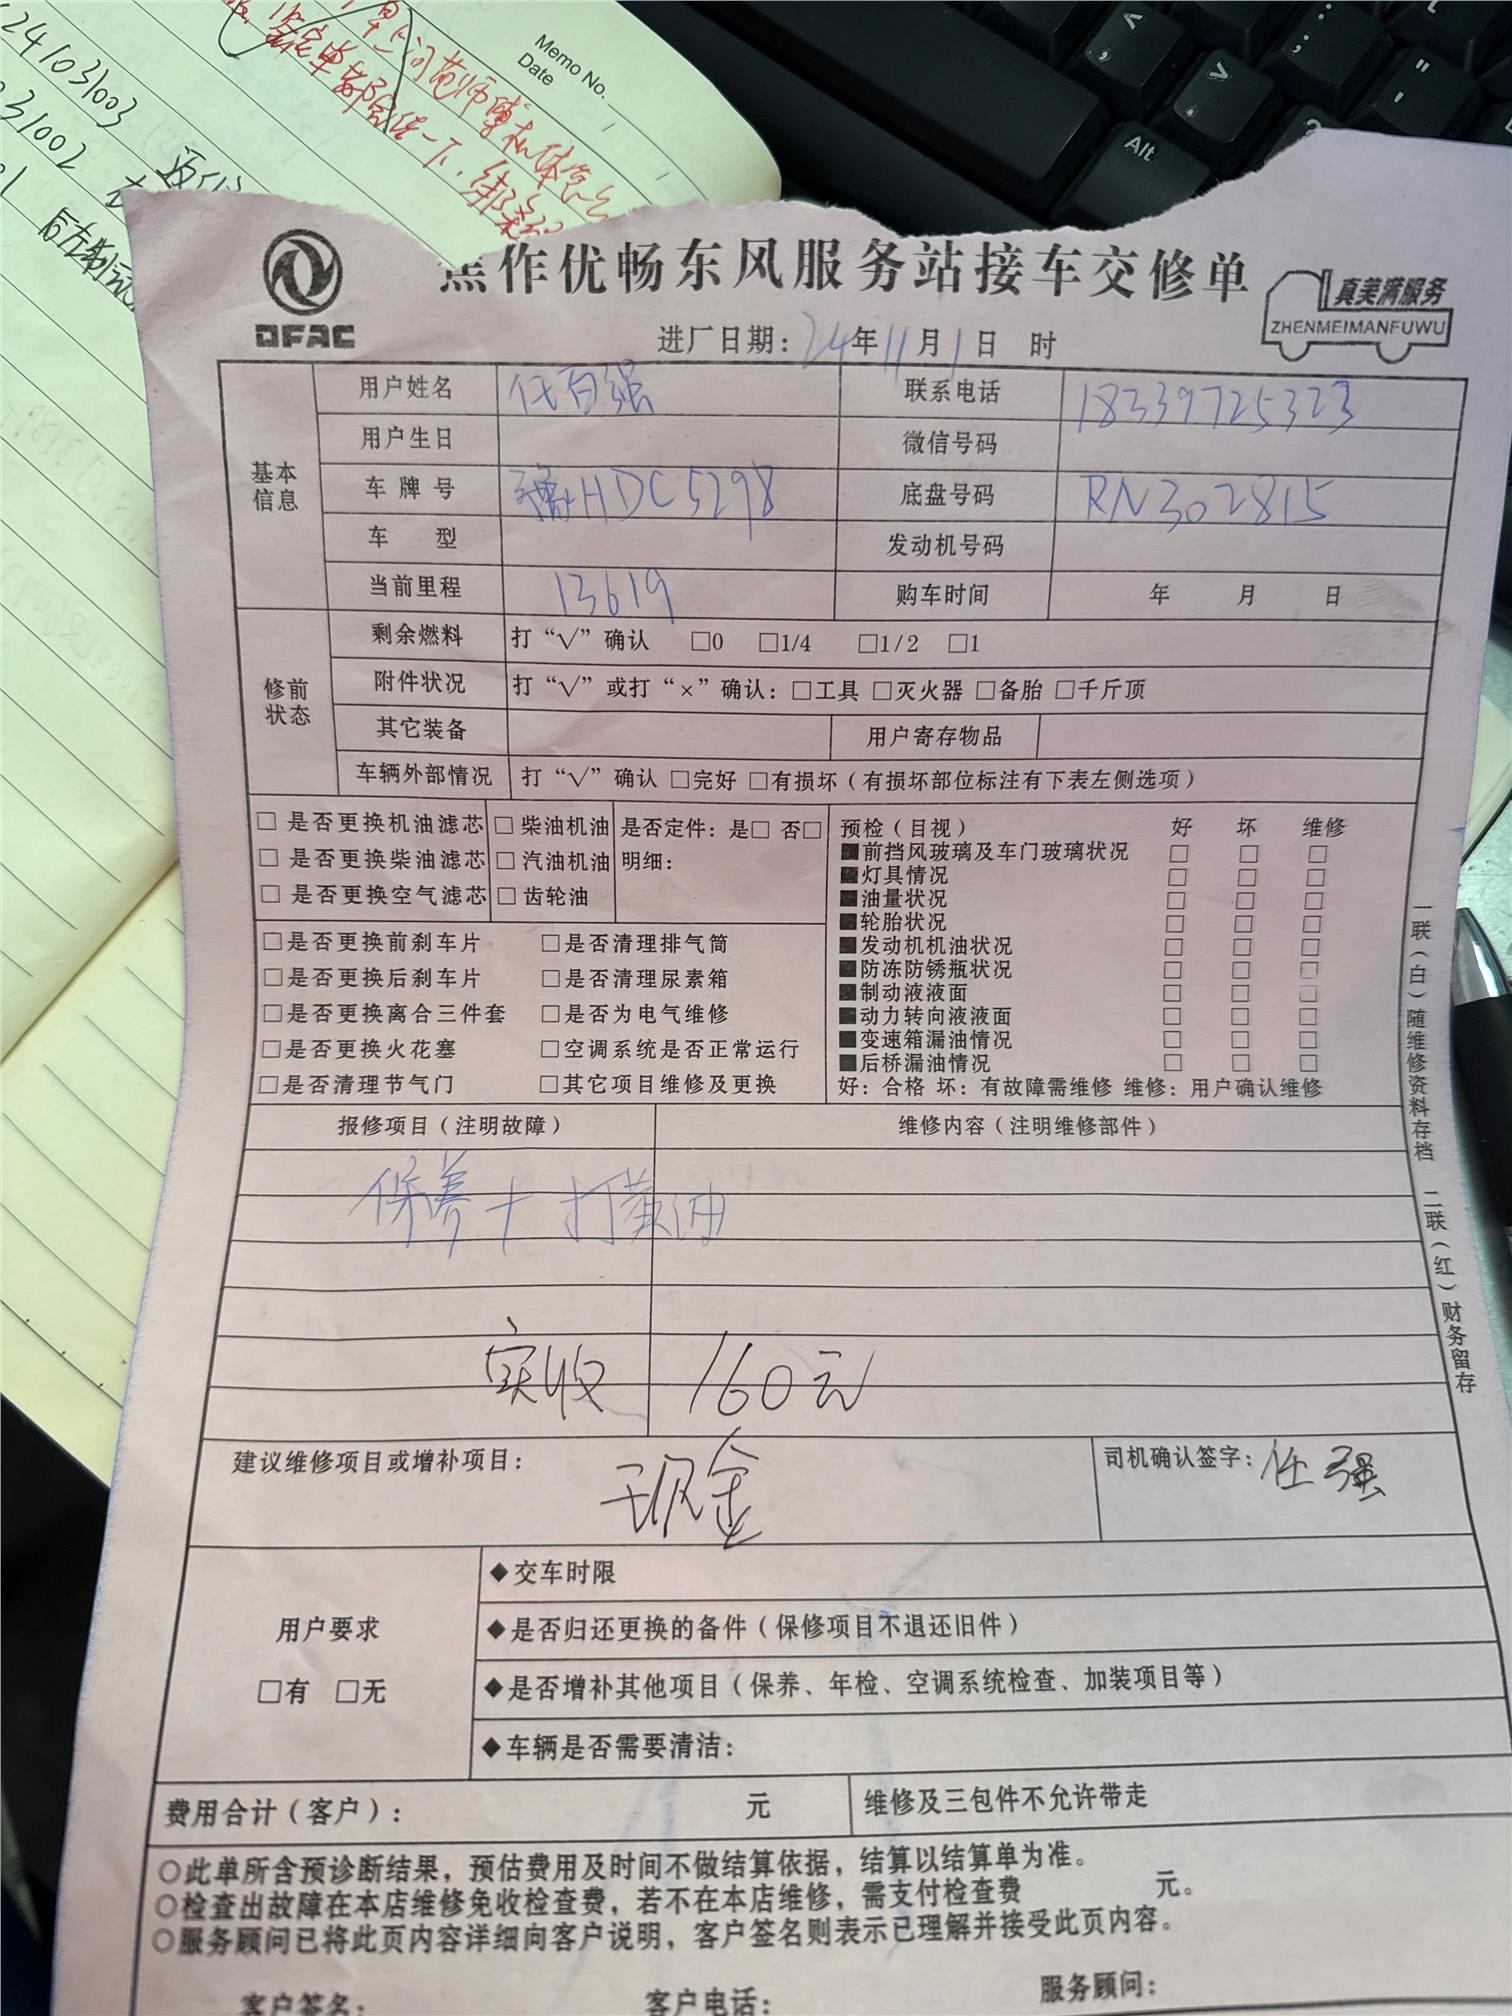 Memo No.
Date
241031003
31002
焦作优畅东风服务站接车交修单
DFAC
真美满服务
ZHENMEIMANFUWU
进厂日期：24年11月1日 时
基本信息
用户姓名 任百强 联系电话 18339725323
用户生日 微信号码
车牌号 豫HDC5298 底盘号码 RN302815
车 型 发动机号码
当前里程 13619 购车时间 年 月 日
修前状态
剩余燃料 打“√”确认 □0 □1/4 □1/2 □1
附件状况 打“√”或打“×”确认：□工具 □灭火器 □备胎 □千斤顶
其它装备 用户寄存物品
车辆外部情况 打“√”确认 □完好 □有损坏（有损坏部位标注有下表左侧选项）
□ 是否更换机油滤芯 □ 柴油机油 是否定件：是□ 否□
□ 是否更换柴油滤芯 □ 汽油机油 明细：
□ 是否更换空气滤芯 □ 齿轮油
□是否更换前刹车片 □是否清理排气筒
□是否更换后刹车片 □是否清理尿素箱
□是否更换离合三件套 □是否为电气维修
□是否更换火花塞 □空调系统是否正常运行
□是否清理节气门 □其它项目维修及更换
预检（目视） 好 坏 维修
■前挡风玻璃及车门玻璃状况 □ □ □
■灯具情况 □ □ □
■油量状况 □ □ □
■轮胎状况 □ □ □
■发动机机油状况 □ □ □
■防冻防锈瓶状况 □ □ □
■制动液液面 □ □ □
■动力转向液液面 □ □ □
■变速箱漏油情况 □ □ □
■后桥漏油情况 □ □ □
好：合格 坏：有故障需维修 维修：用户确认维修
一联（白）随维修资料存档 二联（红）财务留存
报修项目（注明故障） 维修内容（注明维修部件）
保养+打黄油
实收 160元
建议维修项目或增补项目： 现金 司机确认签字：任强
用户要求
□有 □无
◆交车时限
◆是否归还更换的备件（保修项目不退还旧件）
◆是否增补其他项目（保养、年检、空调系统检查、加装项目等）
◆车辆是否需要清洁：
费用合计（客户）： 元 维修及三包件不允许带走
○此单所含预诊断结果，预估费用及时间不做结算依据，结算以结算单为准。
○检查出故障在本店维修免收检查费，若不在本店维修，需支付检查费 元。
○服务顾问已将此页内容详细向客户说明，客户签名则表示已理解并接受此页内容。
客户签名： 客户电话： 服务顾问：
Alt